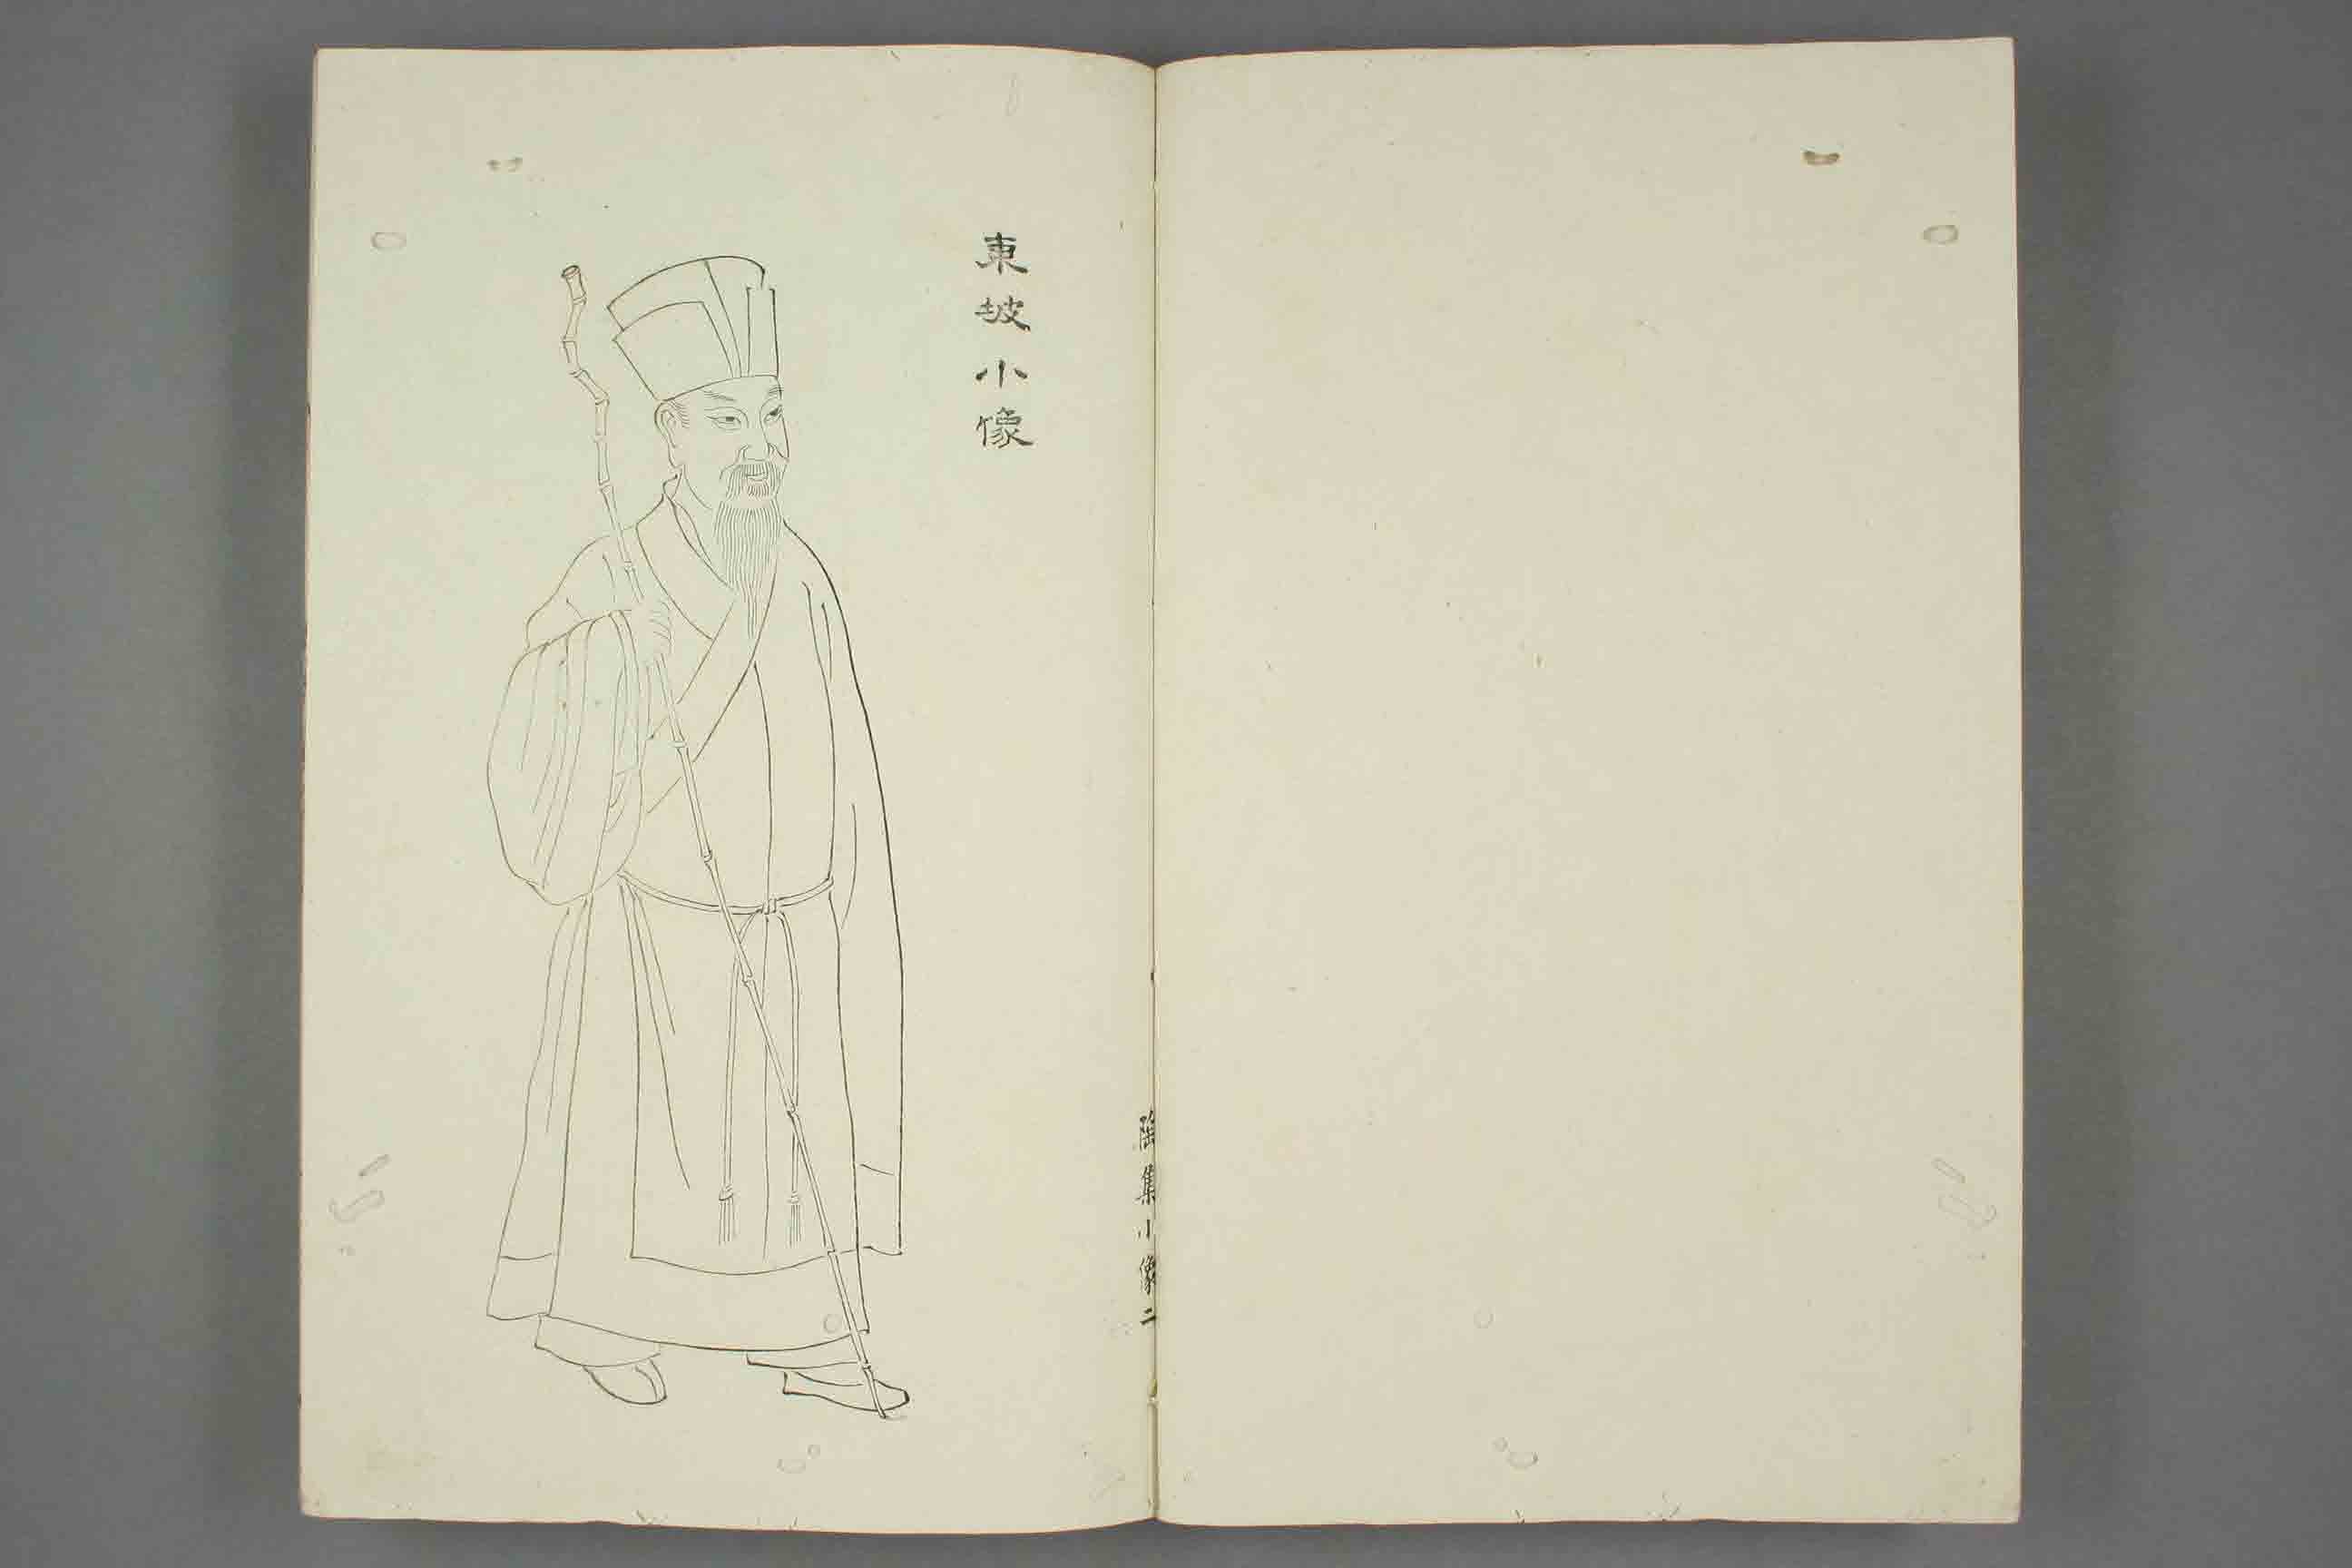 東坡小像
陶集小像二